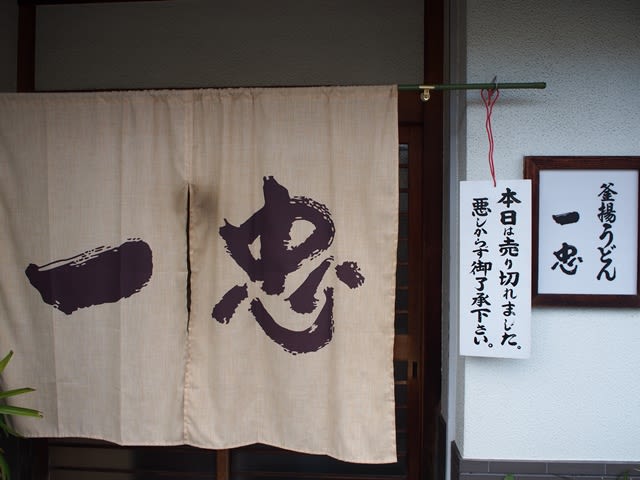 一忠
本日は売り切れました。
悪しからず御了承下さい。
釜揚うどん
一忠